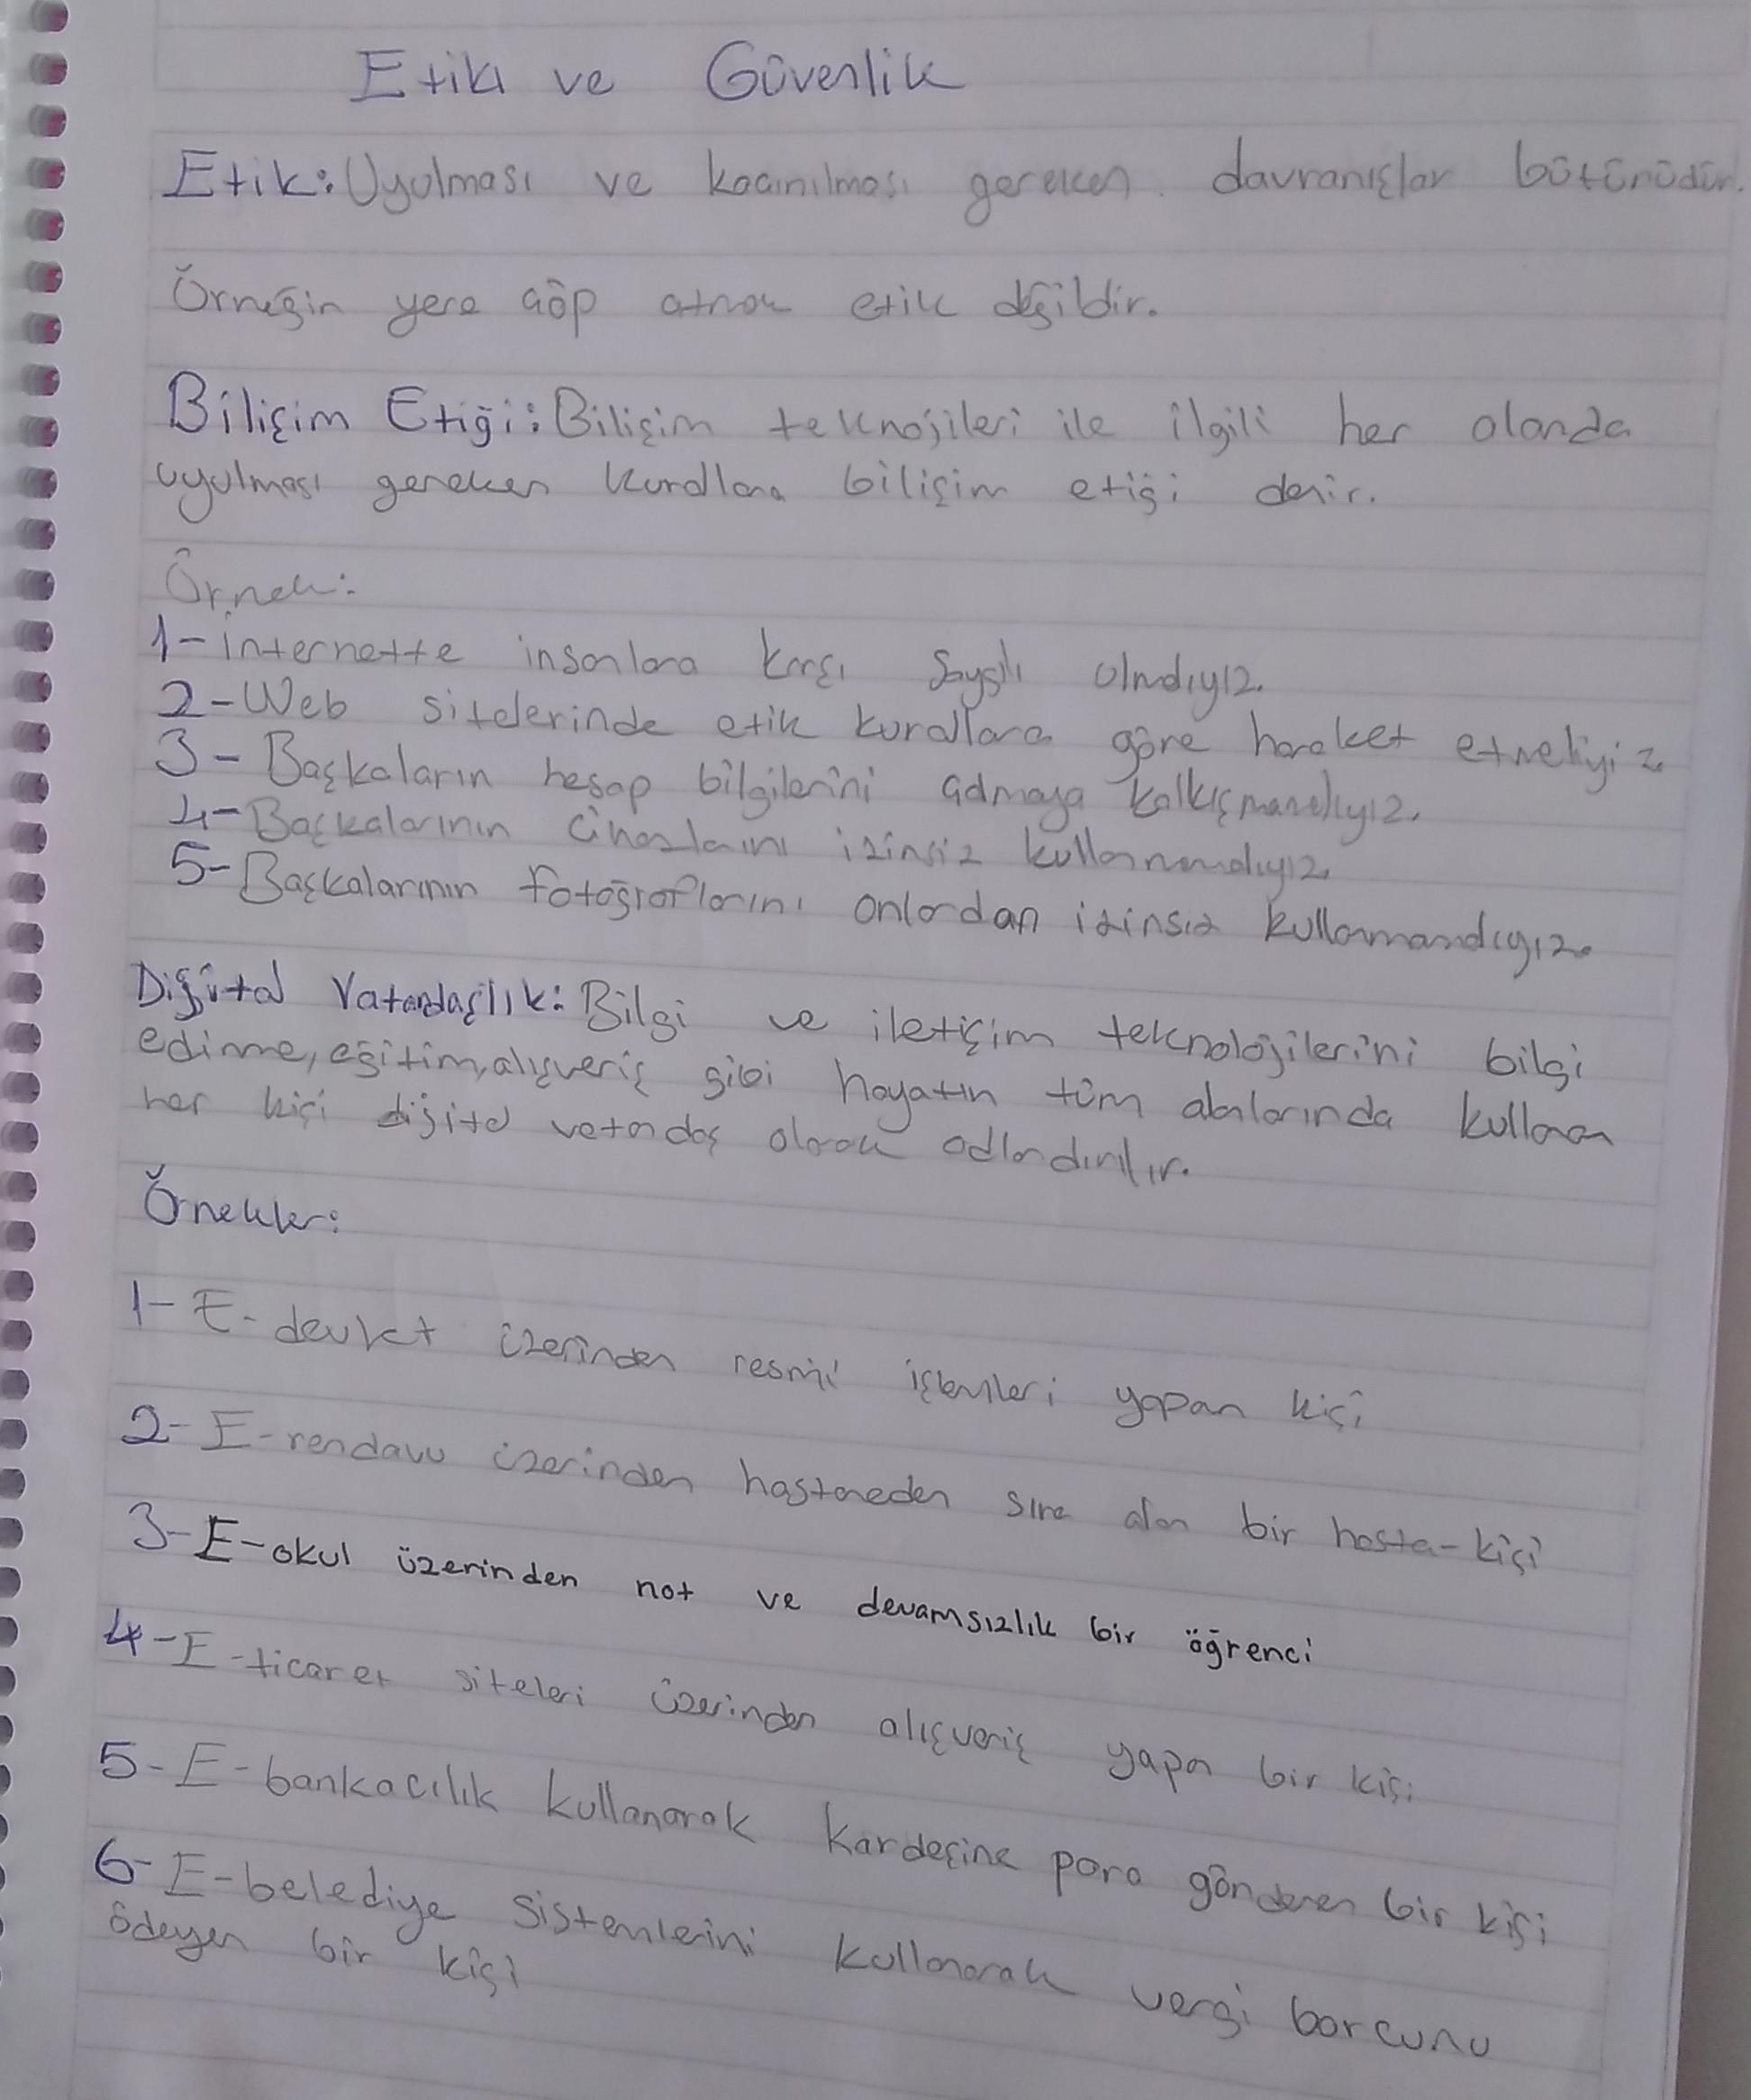 Etik ve Güvenlik
Etik: Uyulması ve kaçınılması gereken davranışlar bütünüdür.
Örneğin yere çöp atmak etik değildir.
Bilişim Etiği: Bilişim teknojileri ile ilgili her alanda
uyulması gereken kurallara bilişim etiği denir.
Örnek:
1- İnternette insanlara karşı saygılı olmalıyız.
2- Web sitelerinde etik kurallara göre hareket etmeliyiz.
3- Başkaların hesap bilgilerini çalmaya kalkışmamalıyız.
4- Başkalarının cihazlarını izinsiz kullanmamalıyız.
5- Başkalarının fotoğraflarını onlardan izinsiz kullanmamalıyız.
Dijital Vatandaşlık: Bilgi ve iletişim teknolojilerini bilgi
edinme, eğitim, alışveriş gibi hayatın tüm alanlarında kullanan
her kişi dijital vatandaş olarak adlandırılır.
Örnekler:
1- E-devlet üzerinden resmi işlemleri yapan kişi
2- E-randavu üzerinden hastaneden sıra alan bir hasta-kişi
3- E-okul üzerinden not ve devamsızlık bir öğrenci
4- E-ticaret siteleri üzerinden alışveriş yapan bir kişi
5- E-bankacılık kullanarak kardeşine para gönderen bir kişi
6- E-belediye sistemlerini kullanarak vergi borcunu
ödeyen bir kişi